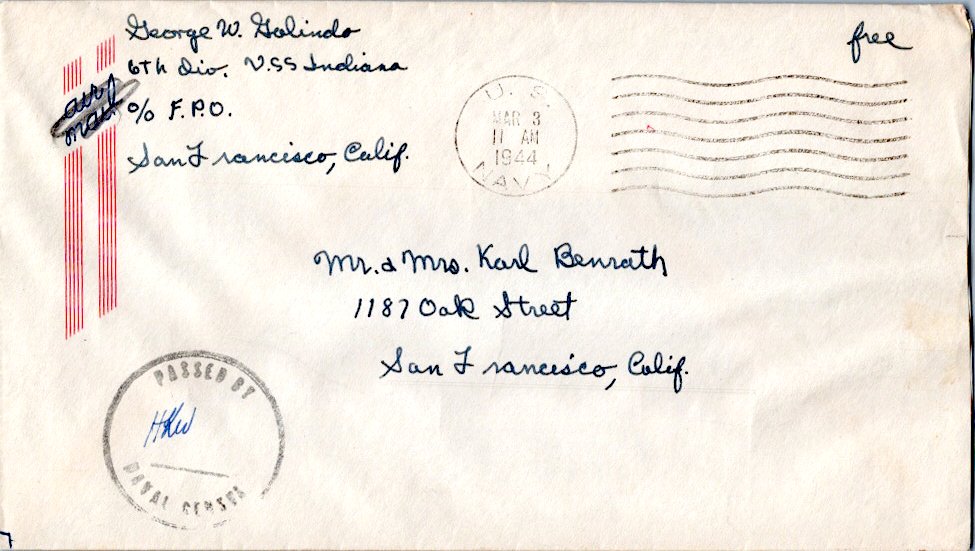 George W. Golindo
free
6th Div. USS Indiana
air
mail
c/o F.P.O.
San Francisco, Calif.
U.S.
MAR 3
11 AM
1944
NAVY
Mr. & Mrs. Karl Benrath
1187 Oak Street
San Francisco, Calif.
PASSED BY
NAVAL CENSOR